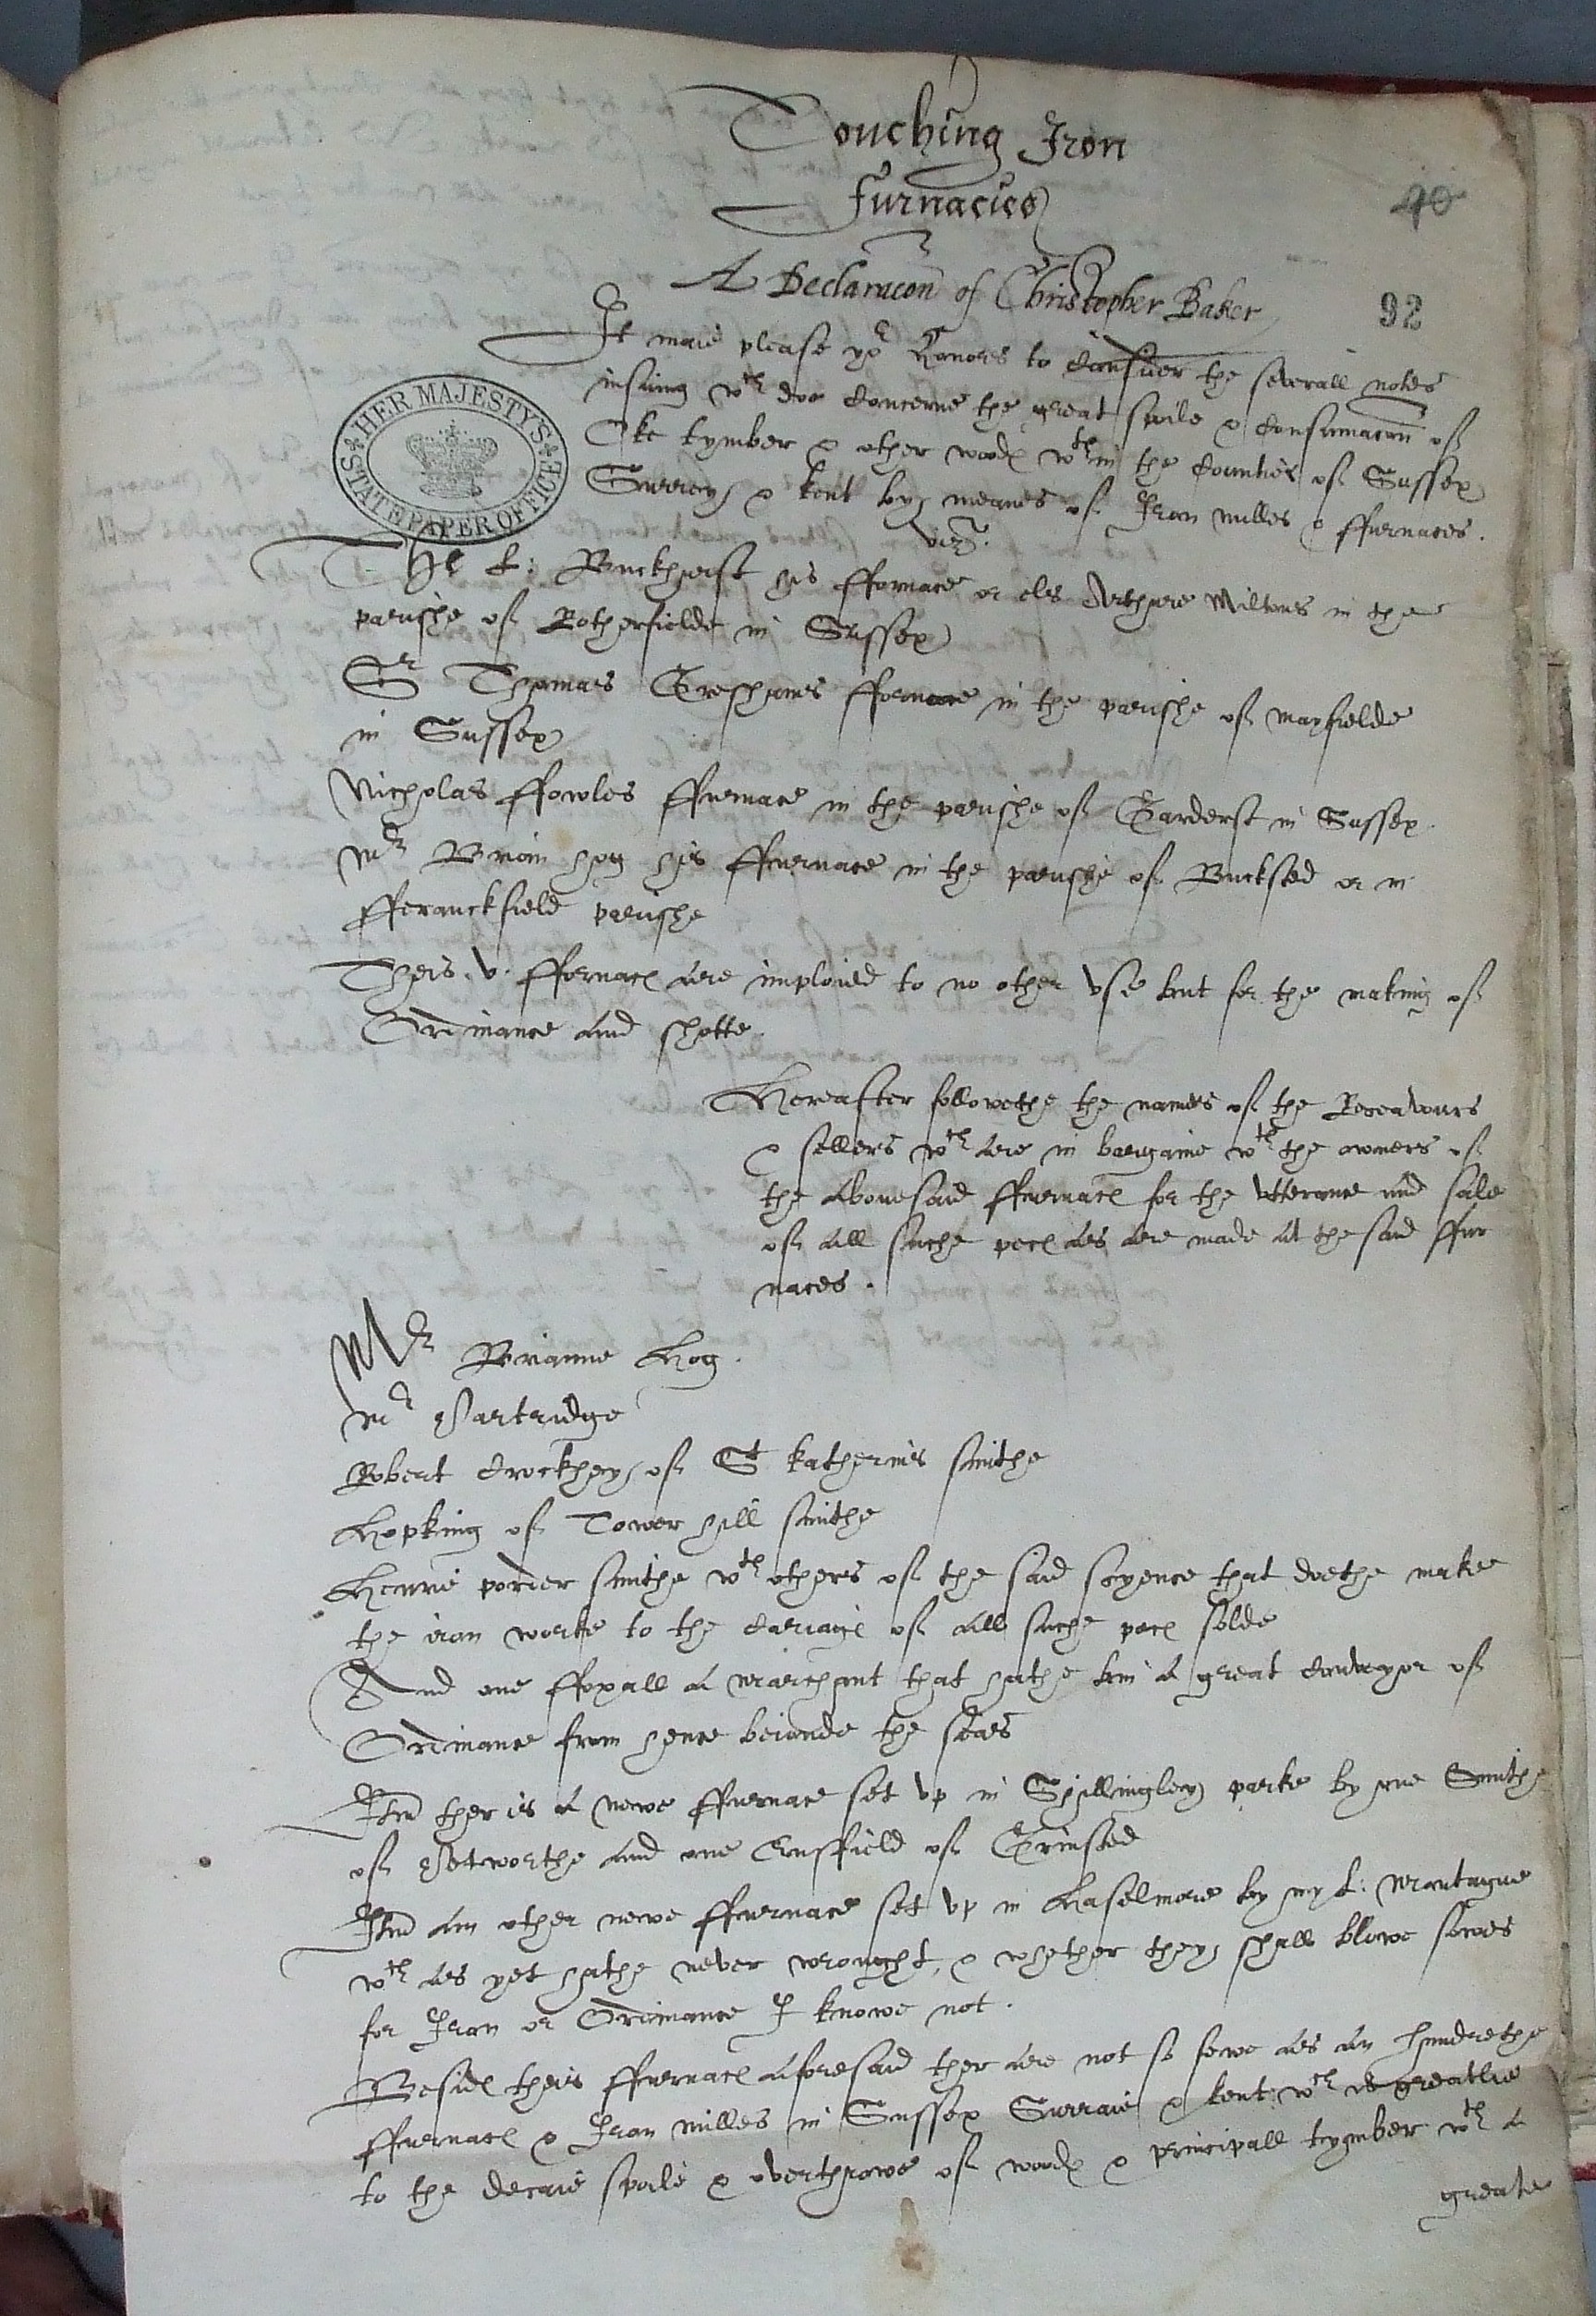 Touching Iron
furnacies
40
A Declaracon of Christopher Baker
92
It maie please yor Honors to Consider the severall notes
insuing wch doe Concerne the great spoile & Consumacon of
Oke tymber & other woods wthin the Counties of Sussex
Surrey & kent by meanes of Iron milles & ffurnaces.
vizt.
HER MAJESTY'S
STATE PAPER OFFICE
The L: Buckherst his ffornace or els Arthure Miltons in the
parishe of Rotherfielde in Sussex
Sr Thomas Greshams ffornace in the parishe of mayfielde
in Sussex
Nicholas ffowles ffurnace in the parishe of Warderst in Sussex.
Mr Brian hog his ffurnace in the parishe of Bucksted or in
fferanckfield parishe
Theis .v. ffornaces are imploied to no other vse but for the making of
Ordinance and shotte.
Hereafter followethe the names of the Receavours
& sellers wch are in bargaine wth the owners of
the abouesaid ffurnaces for the vtterance and sale
of all suche peces as are made at the said ffur
naces.
Mr Brianne Hog.
Mr Partridge
Robert Crockhey of St katherins smithe
Hopking of Tower hill smithe
Henrie porder smithe wth others of the said scyence that doethe make
the iron worke to the Cariages of all suche peces solde
And one ffoxall a marchant that hathe bin a great Conveyor of
Ordinance from hence beionde the seaes
Itm ther is a newe ffurnace set vp in Shillingley parke by one Smith
of Petworthe and one Dusffield of Grinsted
Itm an other newe ffurnace set vp in Haselmore by my L: Montague
wch as yet hathe never wrought, & whether they shall blowe sowes
for Iron or Ordinance I knowe not.
Besides theis ffurnaces aforesaid ther are not so fewe as an hundrethe
ffurnaces & Iron milles in Sussex Surraie & kent wch is greatlie
to the decaie spoile & overthrowe of woods & principall tymber wth a
greate